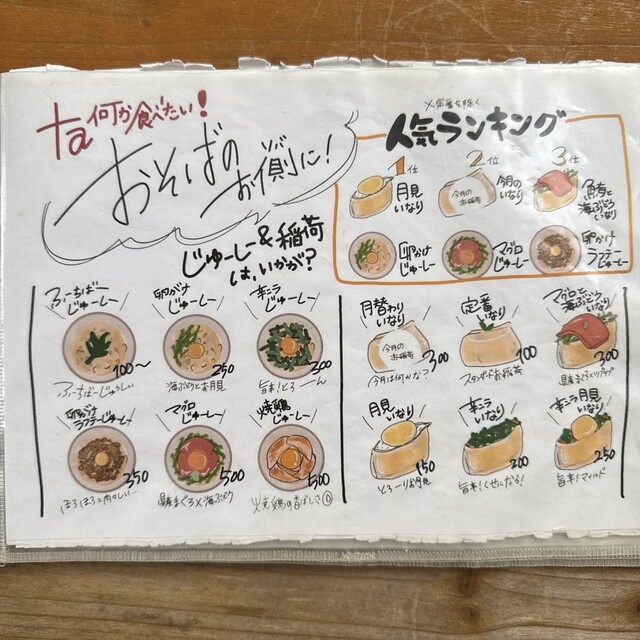 ta何か食べたい！
おそばの
お側に！
じゅーしー&稲荷
は、いかが？
※定番を除く
人気ランキング
1位
月見
いなり
2位
今月の
お稲荷
今月の
いなり
3位
鮪と
海ぶどう
いなり
卵かけ
じゅーしー
マグロ
じゅーしー
卵かけ
ラフテーじゅーしー
ふーちばー
じゅーしー
100〜
ふーちばーじゅうしい
卵がけ
じゅーしー
250
海ぶどうとお月見
辛ニラ
じゅーしー
300
旨辛！とろーん
卵がけ
ラフテーじゅーしー
350
ほろほろ×肉々しい…
マグロ
じゅーしー
500
県産まぐろ×海ぶどう
焼鶏
じゅーしー
500
火焼鶏の香ばしさ
月替わり
いなり
今月の
お稲荷
300
今月は何かな？
定番
いなり
100
スタンダードお稲荷
マグロと
海ぶどう
いなり
300
県産まぐろ×ツブツブ
月見
いなり
150
とろーりお月見
辛ニラ
いなり
200
旨辛！くせになる！
辛ニラ月見
いなり
250
旨辛！マイルド